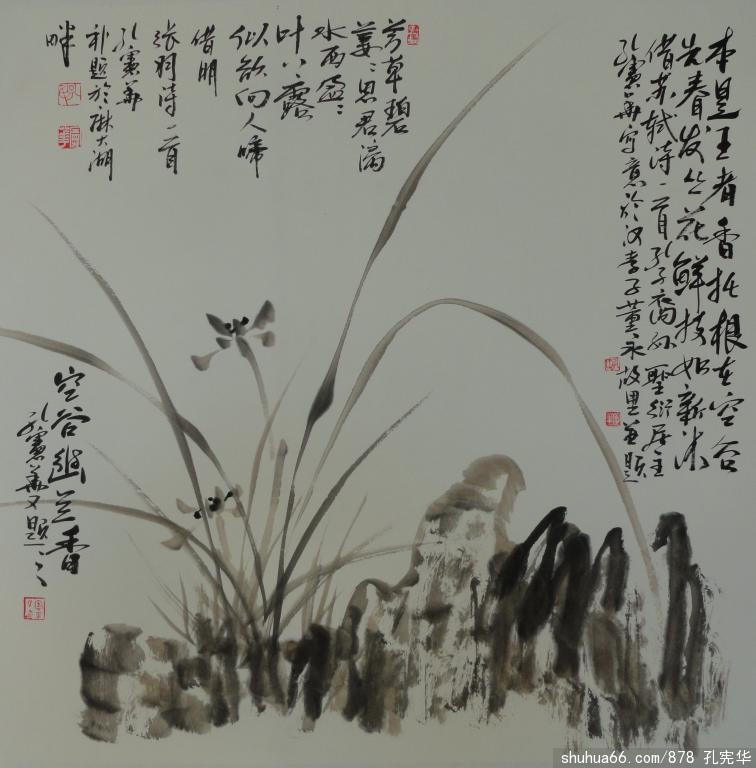 本是王者香托根在空谷
先春发丛花鲜枝如新沐
借苏轼诗一首孔子裔孙聖衍居主
孔宪华写意於汉孝子董永故里並题
芳草碧
萋〻思君漓
水西盈〻
叶上露
似欲向人啼
借明
张羽诗一首
孔宪华
补题於麻大湖
畔
空谷幽兰香
孔宪华又题
shuhua66.com/878 孔宪华